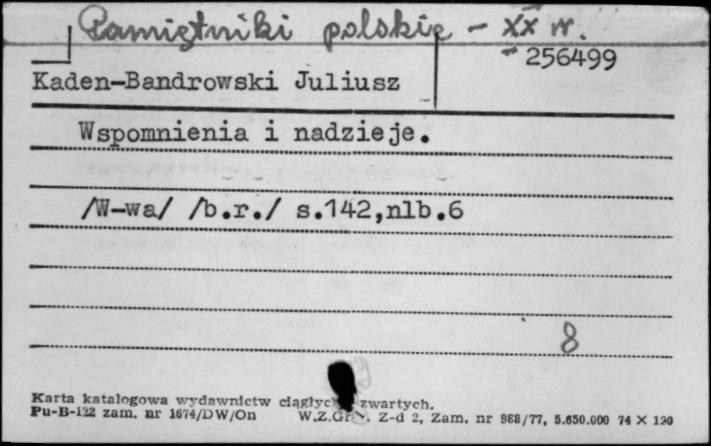 Pamiętniki polskie - XX w.
256499
Kaden-Bandrowski Juliusz
Wspomnienia i nadzieje.
/W-wa/ /b.r./ s.142,nlb.6
8
Karta katalogowa wydawnictw zwartych.
Pu-B-122 zam. nr 1674/DW/On Z-d 2, Zam. nr 988/77, 5.650.000 74 X 120